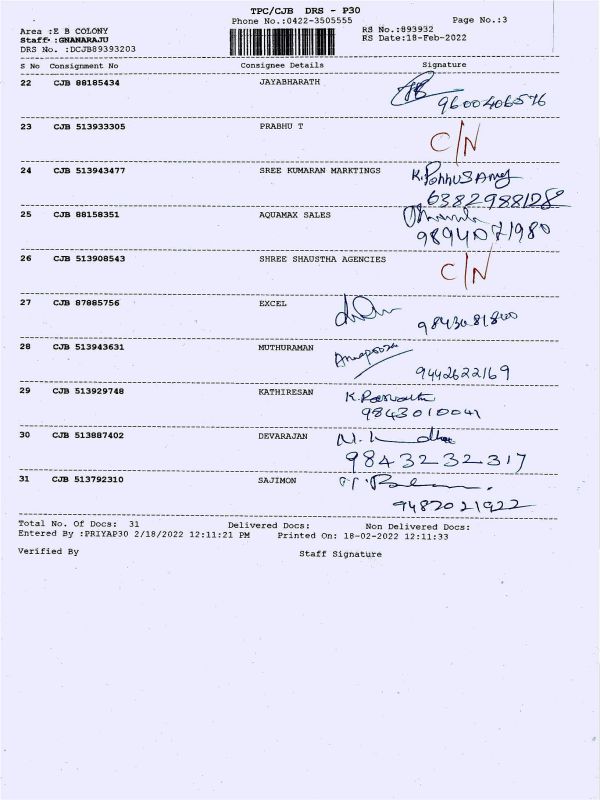 TPC/CJB DRS - P30
Phone No.:0422-3505555 Page No.:3
Area :E B COLONY RS No.:893932
Staff :GNANARAJU RS Date:18-Feb-2022
DRS No. :DCJB89393203
S No Consignment No Consignee Details Signature
22 CJB 88185434 JAYABHARATH
9600406576
23 CJB 513933305 PRABHU T
C/N
24 CJB 513943477 SREE KUMARAN MARKTINGS K.Ponnusamy
6382988128
25 CJB 88158351 AQUAMAX SALES
9894071980
26 CJB 513908543 SHREE SHAUSTHA AGENCIES
C/N
27 CJB 87885756 EXCEL
9843081800
28 CJB 513943631 MUTHURAMAN
9442622169
29 CJB 513929748 KATHIRESAN
9843010041
30 CJB 513887402 DEVARAJAN
98432 32317
31 CJB 513792310 SAJIMON
9487021922
Total No. Of Docs: 31 Delivered Docs: Non Delivered Docs:
Entered By :PRIYAP30 2/18/2022 12:11:21 PM Printed On: 18-02-2022 12:11:33
Verified By Staff Signature